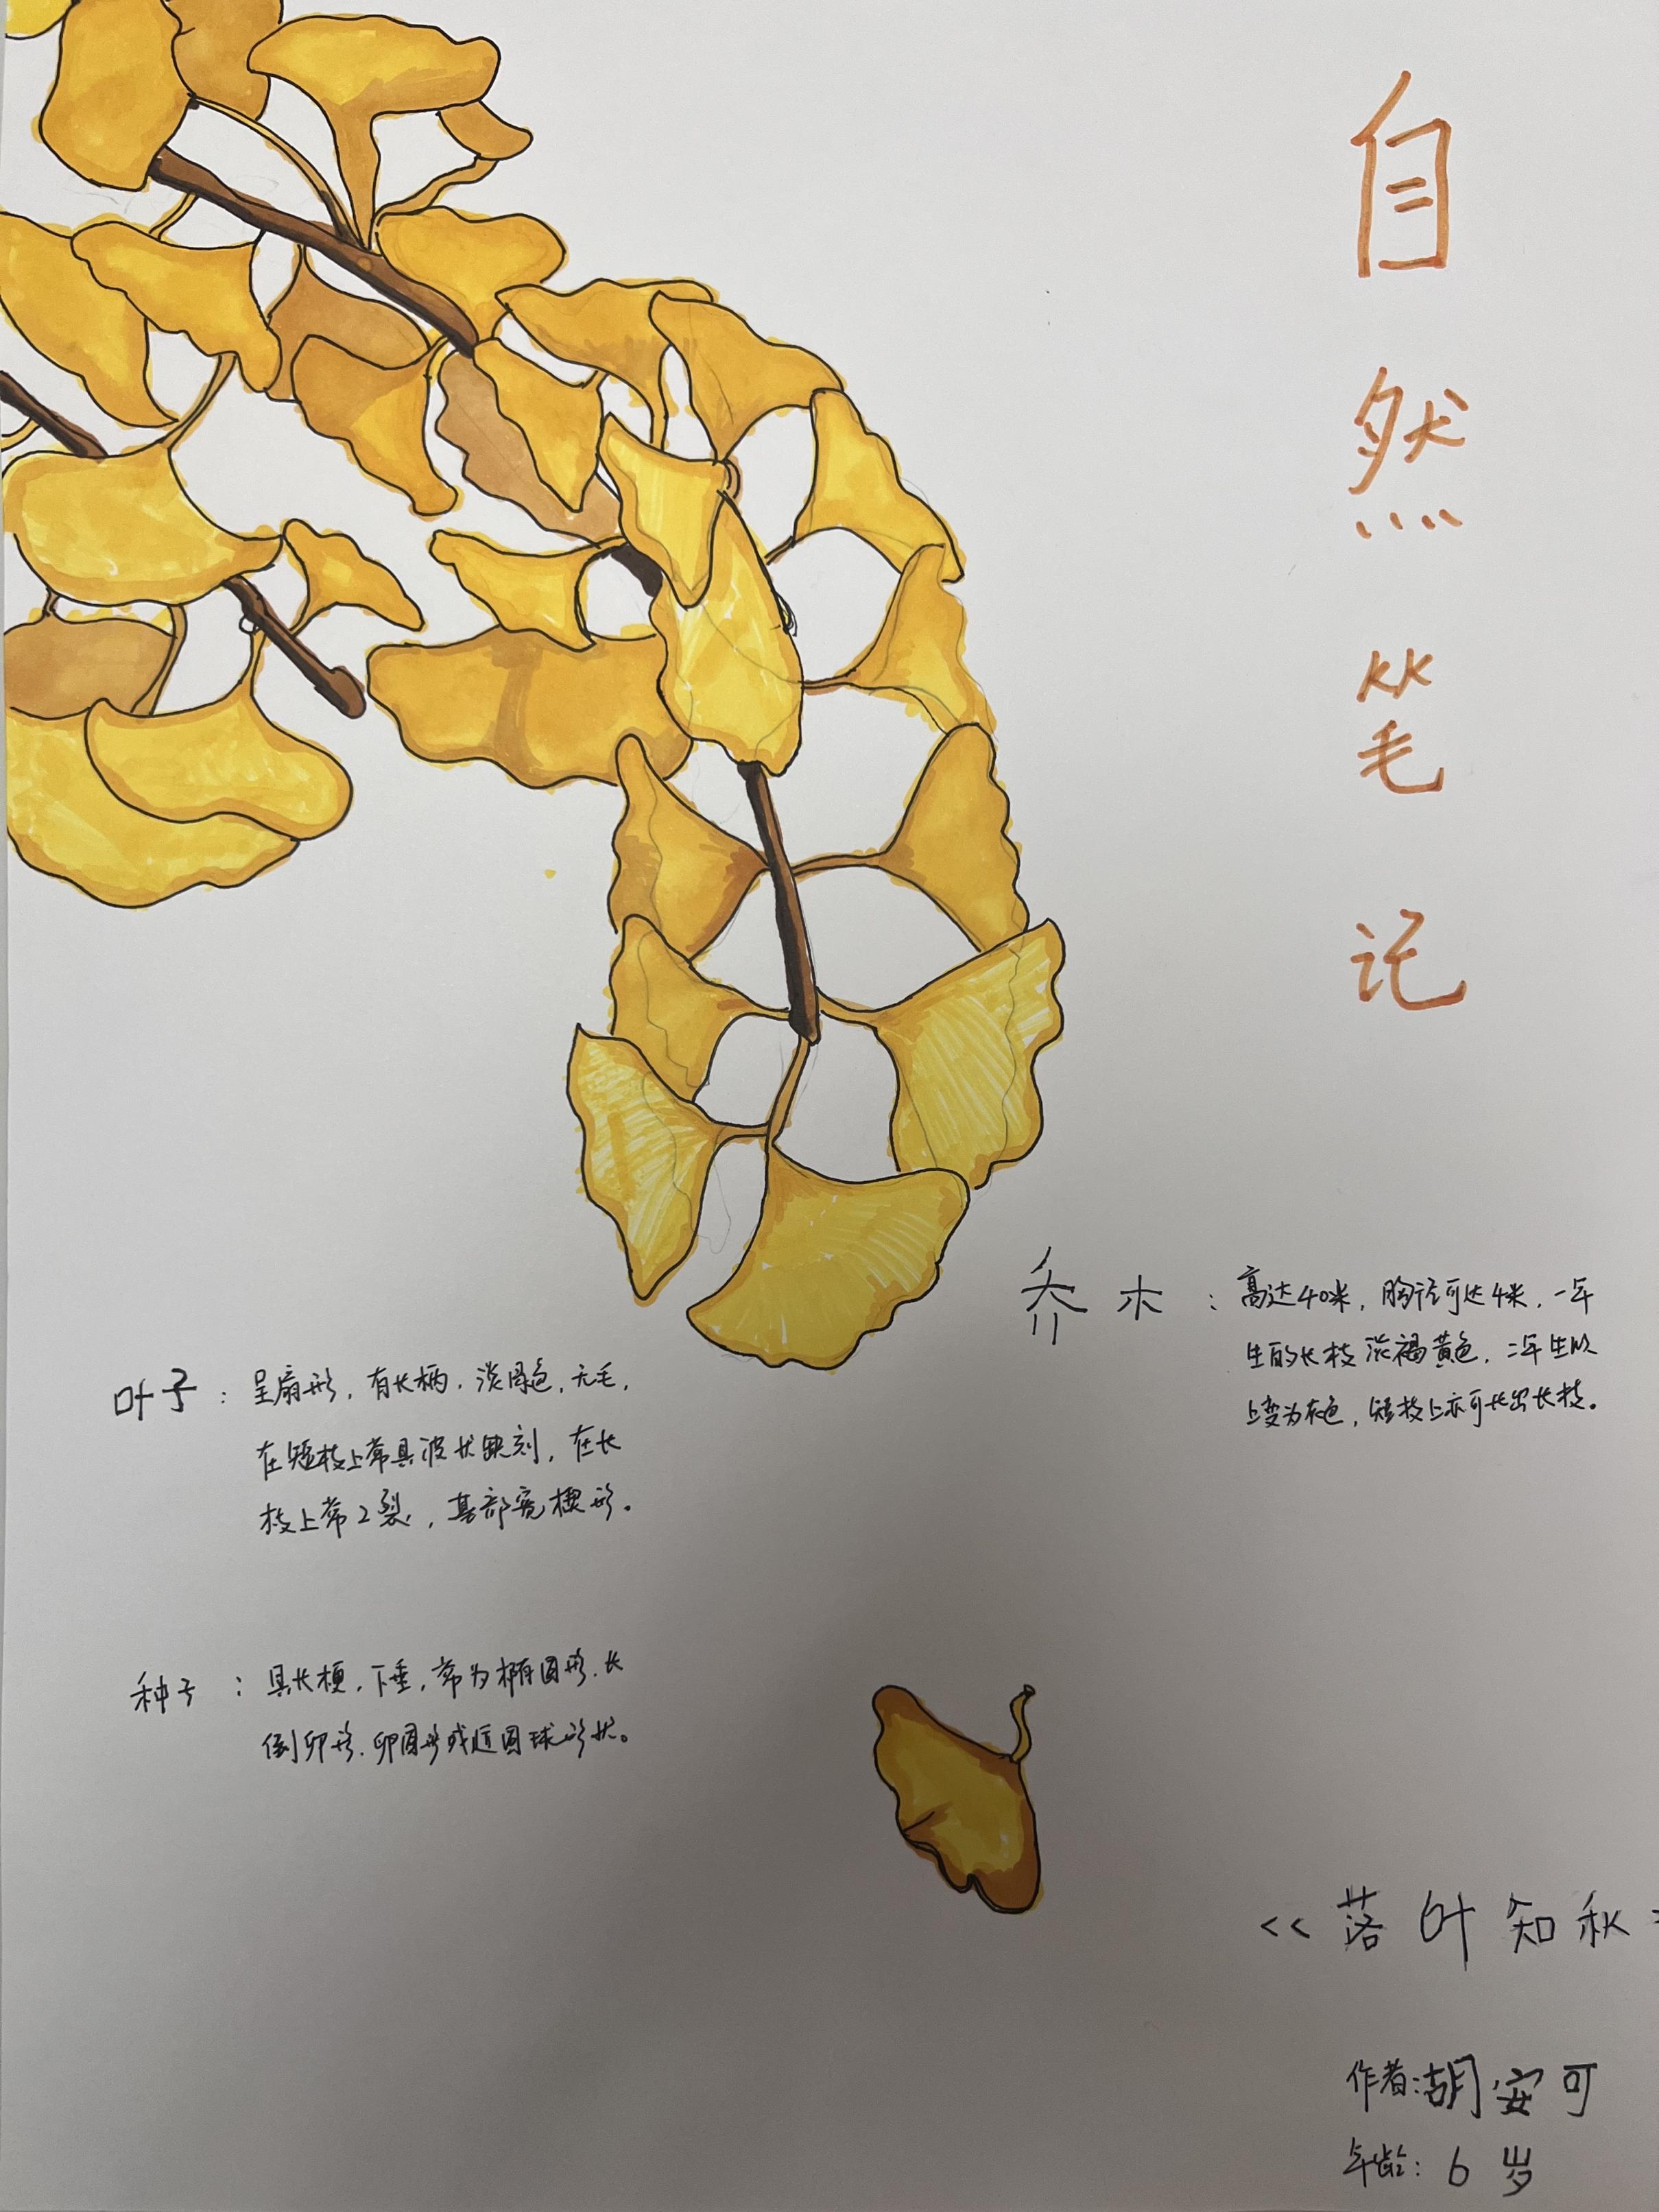 自然笔记
乔木：高达40米，胸径可达4米，一年
生的长枝淡褐黄色，二年生以
上变为灰色，短枝上亦可长出长枝。
叶子：呈扇形，有长柄，淡绿色，无毛，
在短枝上常具波状缺刻，在长
枝上常2裂，基部宽楔形。
种子：具长梗，下垂，常为椭圆形、长
倒卵形、卵圆形或近圆球形状。
<<落叶知秋>
作者：胡安可
年龄：6岁